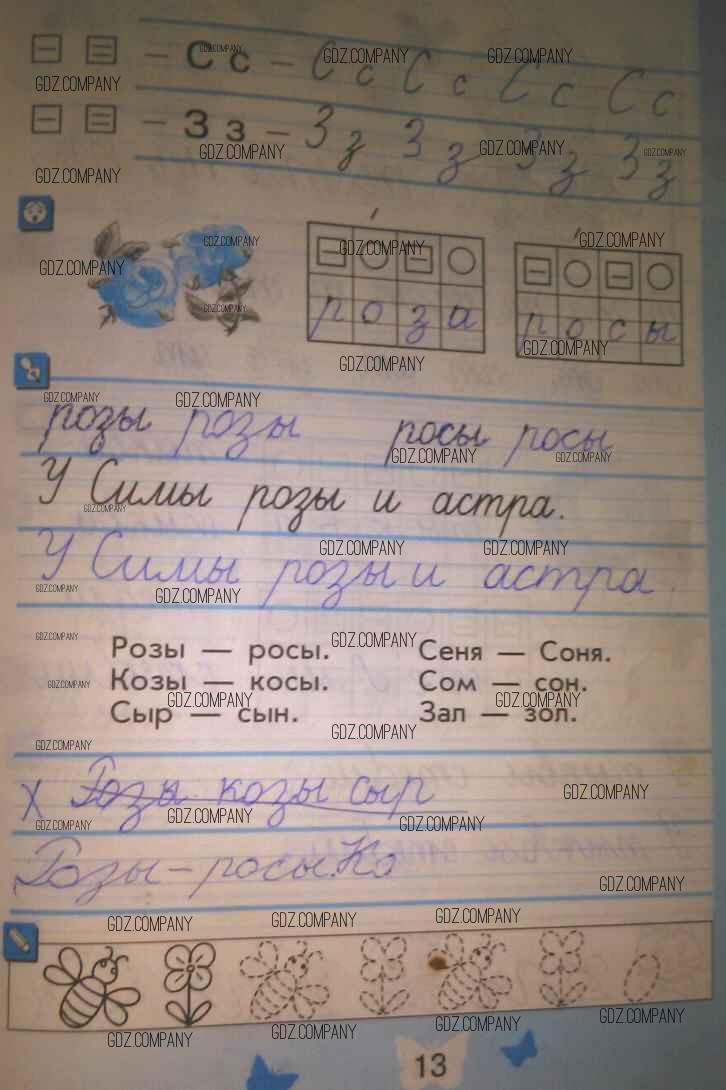 – С с – С с С с С с С с
– З з – З з З з З з З з
р о з а р о с ы
розы розы росы росы
У Симы розы и астра.
У Симы розы и астра.
Розы — росы. Сеня — Соня.
Козы — косы. Сом — сон.
Сыр — сын. Зал — зол.
х Розы козы сыр
Розы – росы. Ко
13
GDZ.COMPANY